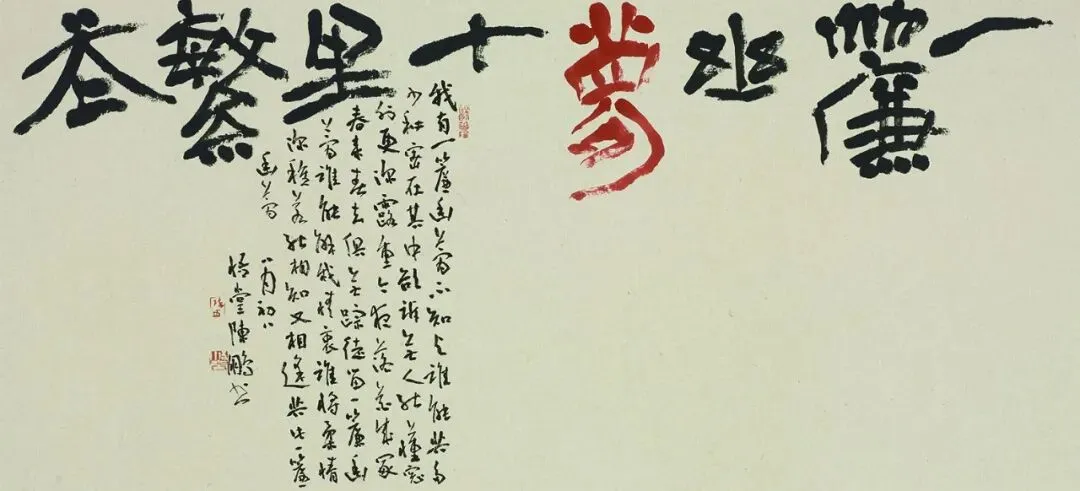 一簾幽夢十里繁花
我有一簾幽夢不知与誰能共多
少秘密在其中欲訴无人能懂窓
外更深露重今夜落花成冢
春来春去俱无踪徒留一簾幽
夢誰能解我情衷誰將柔情
深種若能相知又相逢共此一簾
幽夢
八月初八
悟堂陳鵬书